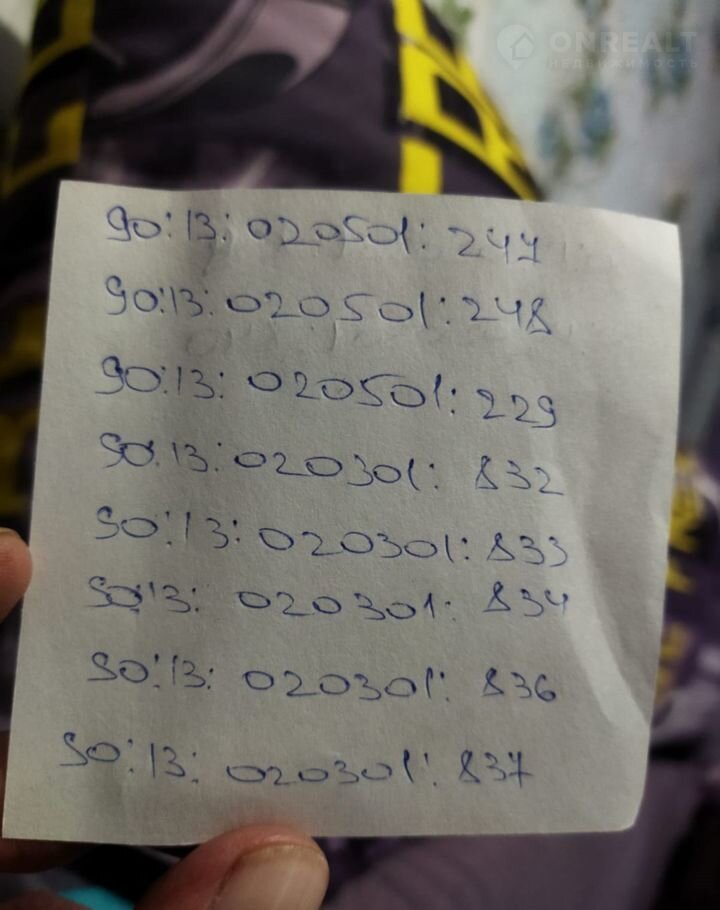 ONREALT
НЕДВИЖИМОСТЬ
90:13:020501:247
90:13:020501:248
90:13:020501:229
90:13:020301:832
90:13:020301:833
90:13:020301:834
90:13:020301:836
90:13:020301:837